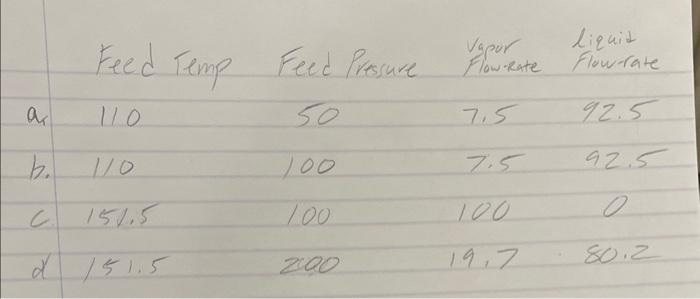 Feed Temp Feed Pressure Vapor Flow-Rate liquid Flow-rate
a. 110 50 7.5 92.5
b. 110 100 7.5 92.5
c. 151.5 100 100 0
d 151.5 200 19.7 80.2